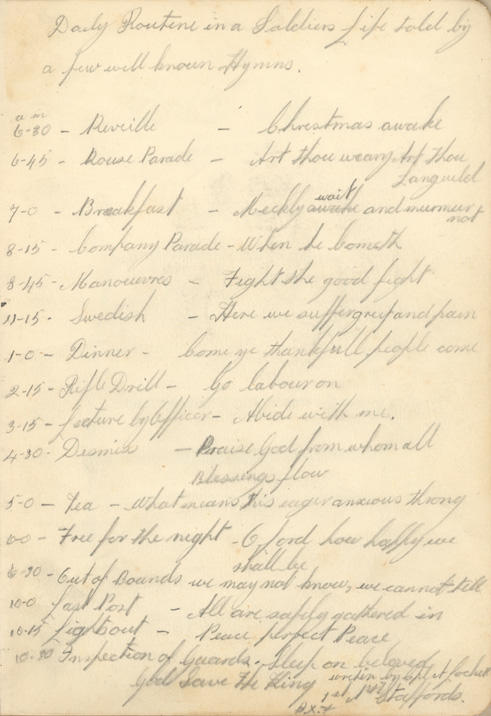 Daily Routine in a Soldiers Life told by
a few well known Hymns.
a m
6-30 - Reveille - Christmas awake
6-45 - Rouse Parade - Art thou weary Art Thou
Languid
7-0 - Breakfast - Meekly wait and murmur
not
8-15 - Company Parade - When he Cometh
8-45 - Manoeuvres - Fight the good fight
11-15 - Swedish - Here we suffer grief and pain
1-0 - Dinner - Come ye thankfull people come
2-15 - Rifle Drill - Go labour on
3-15 - Lecture by Officer - Abide with me.
4-30 - Dismiss - Praise God from whom all
Blessings flow
5-0 - Tea - What means this eager anxious throng
Free for the night - O Lord how happy we
shall be
6-30 - Out of Bounds we may not know, we cannot tell
10-0 Last Post - All are safely gathered in
10-15 Lights out - Peace, perfect Peace
10-30 Inspection of Guards. Sleep on beloved
God Save The King written by
1st Staffords.